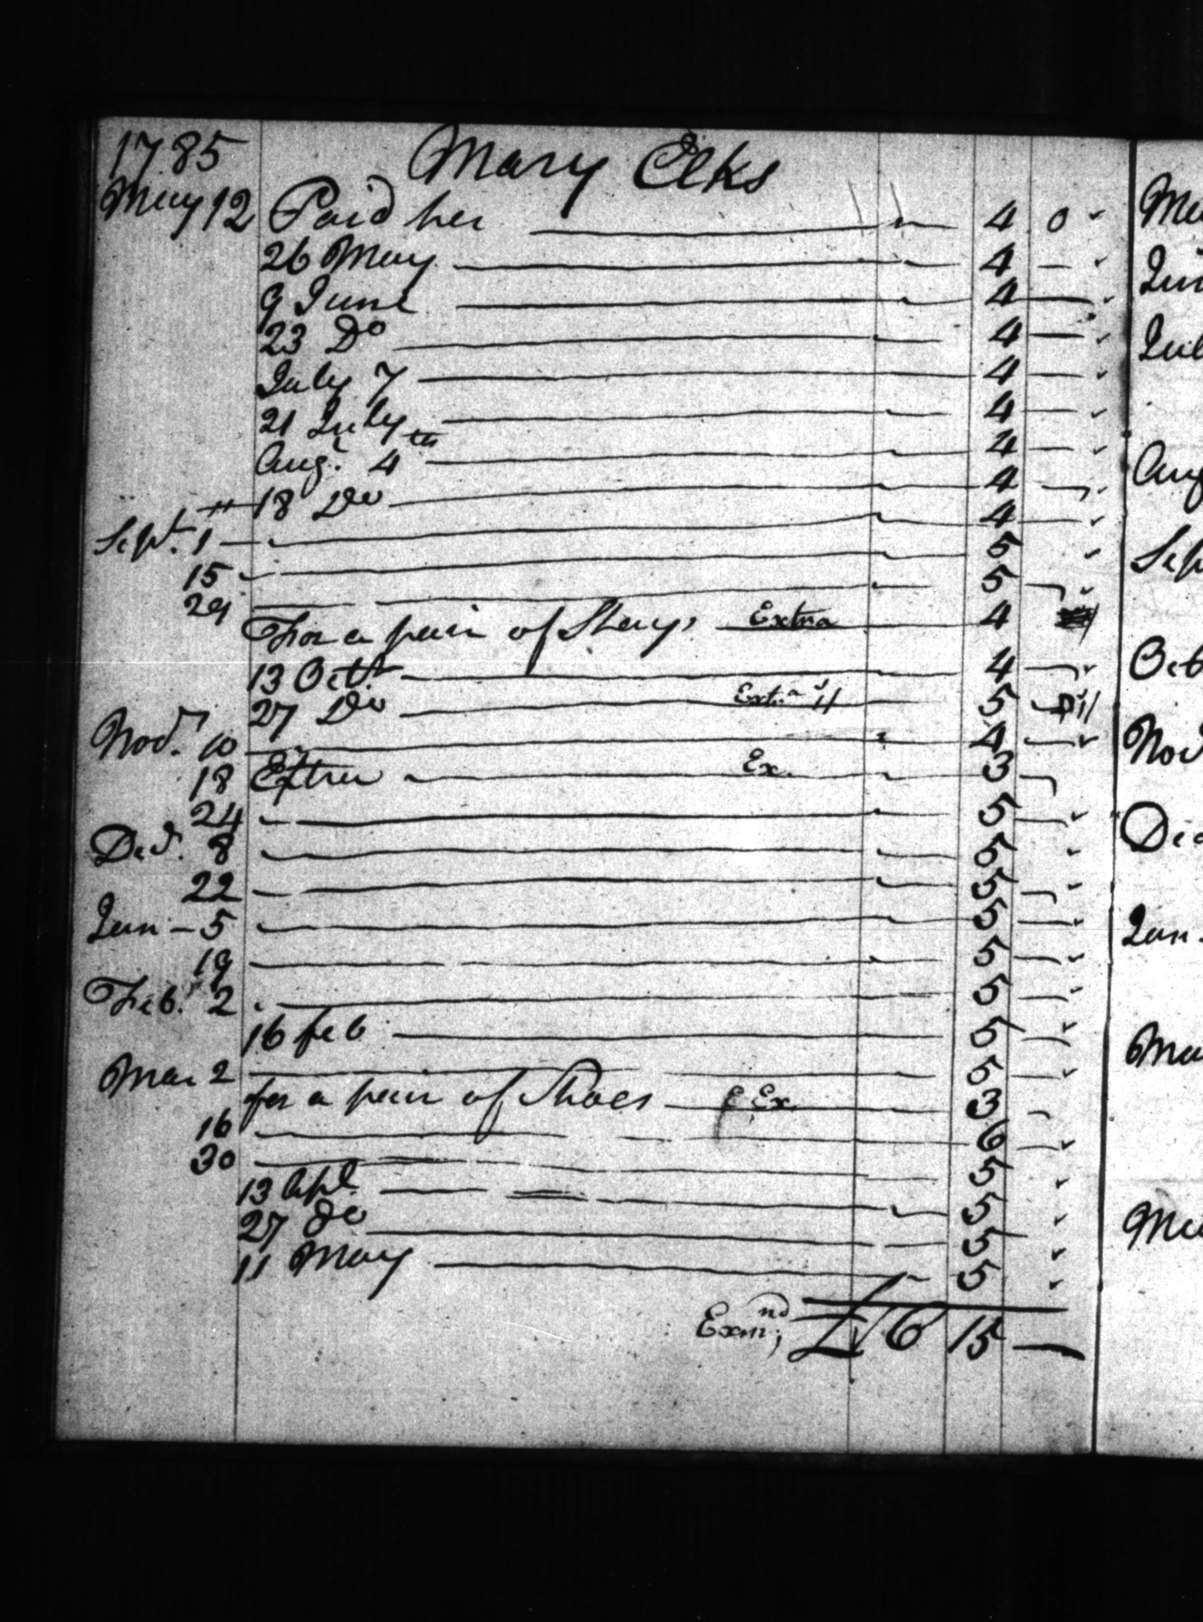 1785 Mary Elks
May 12 Paid her 4 0
26 May 4
9 June 4
23 Do 4
July 7 4
21 July 4
Augt. 4th 4
18 Do 4
Sept. 1 4
15 5
29 5
For a pair of Stays Extra 4
13 Octr 4
27 Do Extra 5
Novr. 10 4
18 Extra Ex. 3
24 5
Decr. 8 5
22 5
Jan - 5 5
19 5
Feb. 2 5
16 feb 5
Mar 2 5
for a pair of Shoes Ex. 3
16 6
30 5
13 Apl. 5
27 Do 5
11 May 5
Exmnd £ 6 15